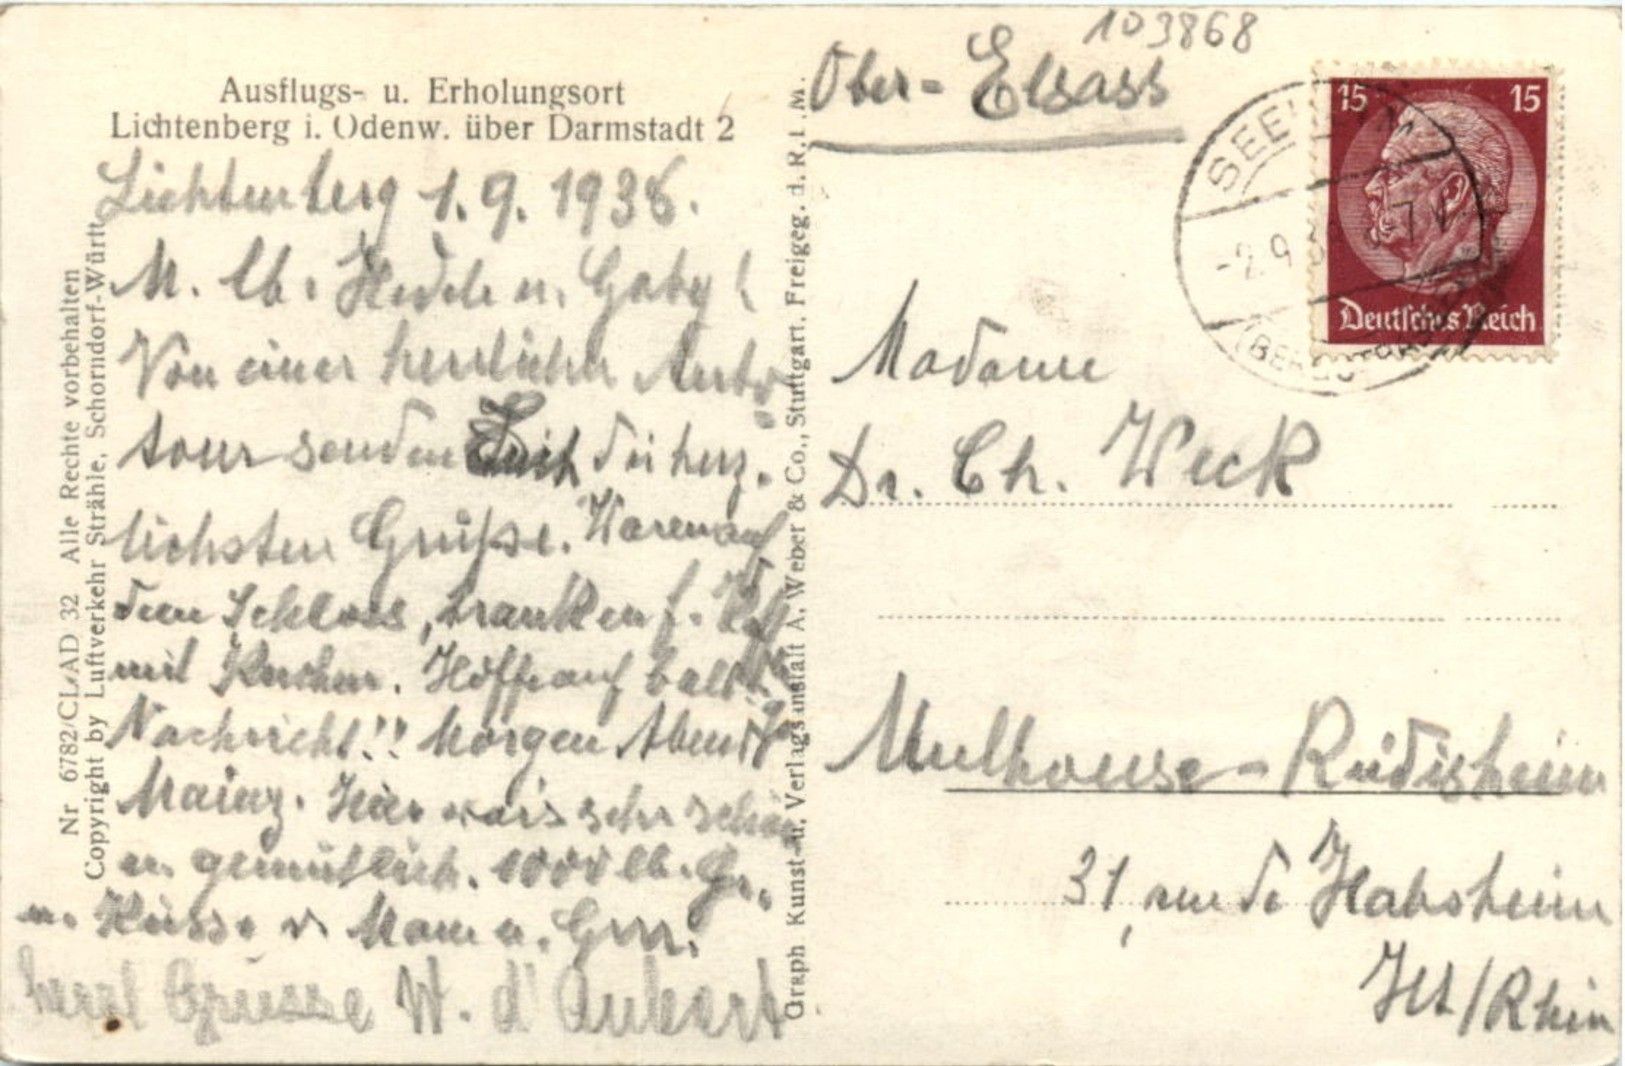 Ausflugs- u. Erholungsort
Lichtenberg i. Odenw. über Darmstadt 2
Lichtenberg 1. 9. 1936.
M. lb. Hedele u. Gaby!
Von einer herrlichen Auto
tour senden Euch die herz-
lichsten Grüsse. Waren auf
dem Schloss, tranken f. Kaff
mit Kuchen. Hoffe auf bald
Nachricht!! Morgen Abend
Mainz. Hier wars sehr schön
u. gemütlich. 1000 lb. Gr.
u. Küsse v. Mama u.
herzl Grüsse W. d'
Nr 6782/CL/AD 32 Alle Rechte vorbehalten
Copyright by Luftverkehr Strähle, Schorndorf-Württ.
Graph Kunst- u. Verlagsanstalt A. Weber & Co., Stuttgart. Freigeg. d. R.L.M.
103868
Ober-Elsass
15 15
Deutsches Reich
SEEHEIM
-2.9.
(BERGSTRASSE)
Madame
Dr. Ch. Weck
Mulhouse-Rüdisheim
31, rue de Habsheim
Ht/Rhin